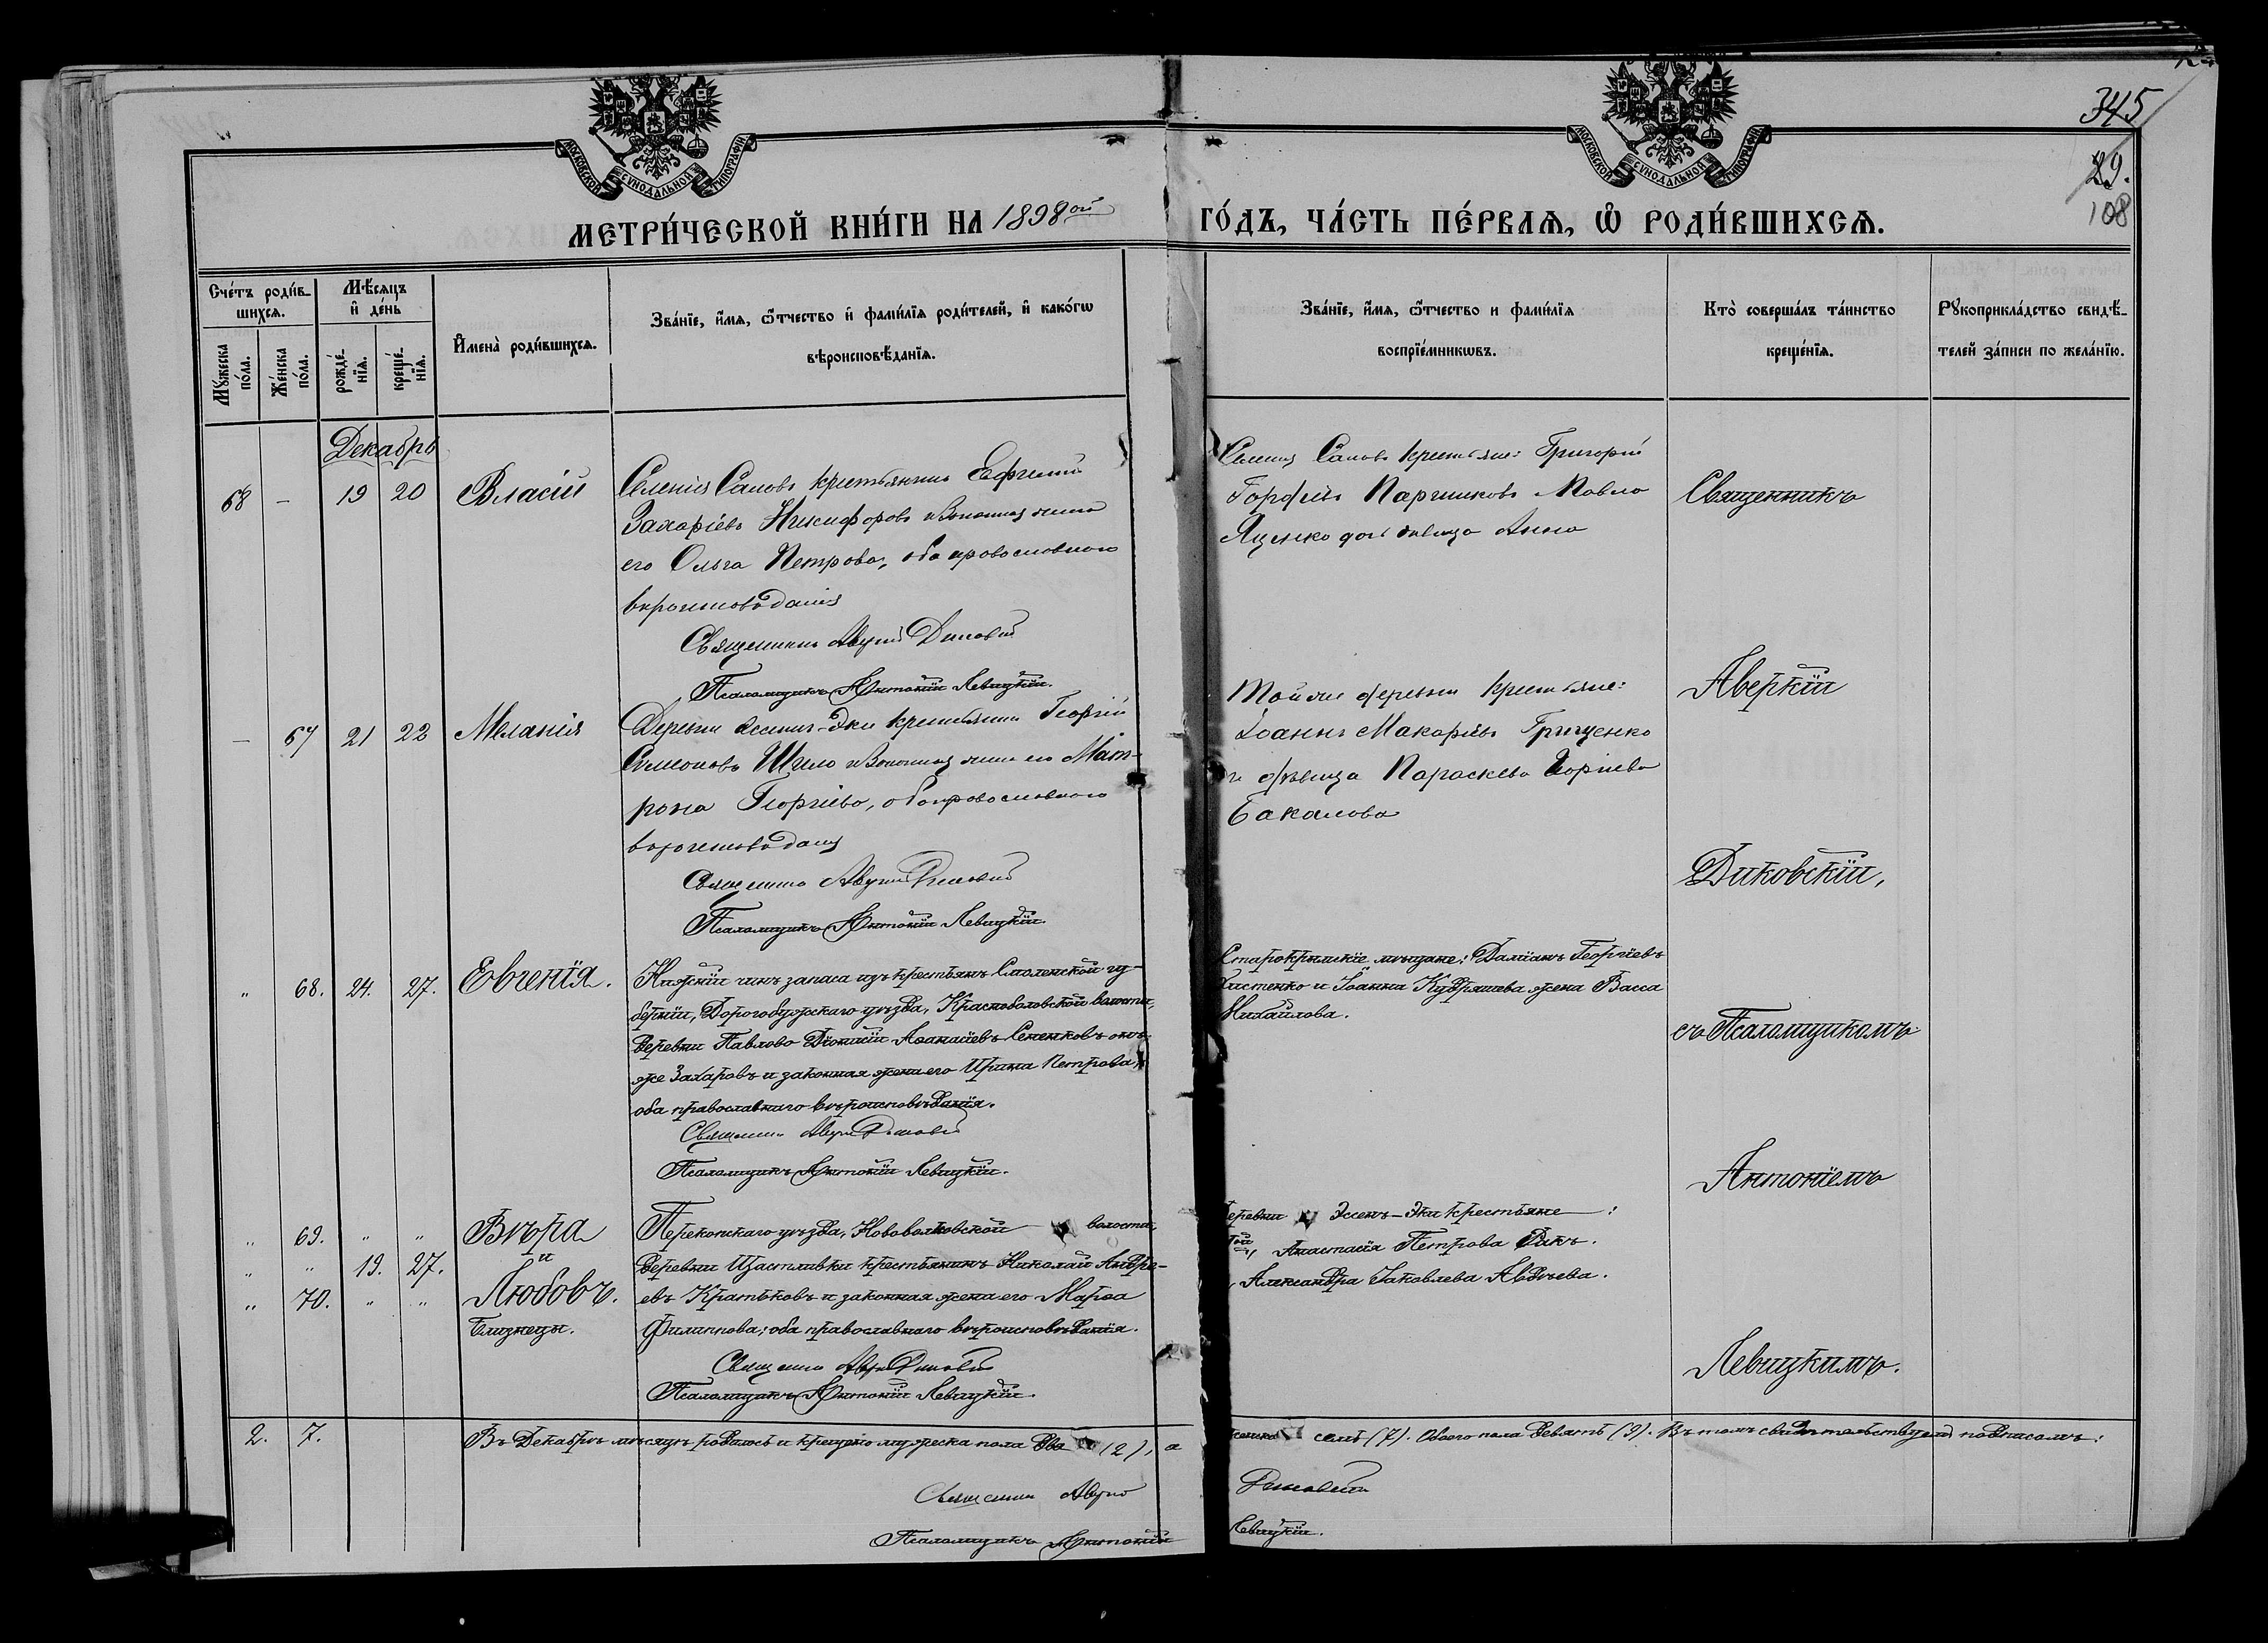 345
29.
108
МОСКОВСКОЙ СѴНОДАЛЬНОЙ ТИПОГРАФІИ
МОСКОВСКОЙ СѴНОДАЛЬНОЙ ТИПОГРАФІИ
МЕТРИ́ЧЕСКОЙ КНИ́ГИ НА 1898ой ГО́ДЪ, ЧА́СТЬ ПЕ́РВАѦ, Ѡ РОДИ́ВШИХСѦ.
Сче́тъ роди́в-
шихсѧ.
Мꙋ́жеска
по́ла.
Же́нска
по́ла.
Мѣ́сѧцъ
и҆ де́нь
рожде́-
нїѧ.
креще́-
нїѧ.
И҆мена̀ роди́вшихсѧ.
Зва́нїе, и҆́мѧ, ѻ҆́тчество и҆ фами́лїѧ роди́телей, и҆ како́гѡ
вѣроисповѣ́данїѧ.
Зва́нїе, и҆́мѧ, ѻ҆́тчество и фами́лїѧ
воспрїе́мникѡвъ.
Кто̀ соверша́лъ та́инство
креще́нїѧ.
Рꙋкоприкла́дство свидѣ́-
телей за́писи по жела́нїю.
Декабрь
68 - 19 20 Власій
Селенія Саловъ крестьянинъ Евфимій
Захаріевъ Никифоровъ и законная жена
его Ольга Петрова, оба православнаго
вѣроисповѣданія
Священникъ Аверкій Диковскій
Псаломщикъ Антоній Левицкій.
Крестьяне: Григорій
Павло
Яценко дѣвица Анна
- 67 21 22 Меланія
Деревни Ессенъ-Эки крестьянинъ Георгій
Симеоновъ Шило и законная жена его Мат-
рона Георгіева, оба православнаго
вѣроисповѣданія
Священникъ Аверкій Диковскій
Псаломщикъ Антоній Левицкій.
Той же деревни крестьяне:
Іоаннъ Макаріевъ Грищенко
и дѣвица Параскева
Бакалова
" 68. 24. 27. Евгенія.
Нижній чинъ запаса изъ крестьянъ Смоленской гу-
берніи, Дорогобужскаго уѣзда, Красноболовской волости,
деревни Павлово Діонисій Аѳанасіевъ Сененковъ онъ-
же Захаровъ и законная жена его Ирина Петрова,
оба православнаго вѣроисповѣданія.
Священникъ Аверкій Диковскій
Псаломщикъ Антоній Левицкій.
Старокрымскіе мѣщане: Даміанъ Георгіевъ
и Іоанна Кудряшева жена Васса
Михайлова.
" 69. " " Вѣра
" " 19. 27. и
" 70. " " Любовъ.
Близнецы.
Перекопскаго уѣзда, волости,
деревни Щастливки крестьянинъ Николай Андре-
евъ Кратьковъ и законная жена его Марѳа
Филиппова; оба православнаго вѣроисповѣданія.
Священникъ Аверкій Диковскій
Псаломщикъ Антоній Левицкій.
Деревни Эссенъ-Эки крестьяне:
Анастасія Петрова
Александра Іаковлева Авдѣева.
Священникъ
Аверкій
Диковскій,
съ Псаломщикомъ
Антоніемъ
Левицкимъ.
2. 7. Въ Декабрѣ мѣсяцѣ родилось и крещено мужеска пола два (2), а женска семь (7). Обоего пола девять (9). Въ томъ свидѣтельствуемъ подписомъ:
Священникъ Аверкій Диковскій
Псаломщикъ Антоній Левицкій.